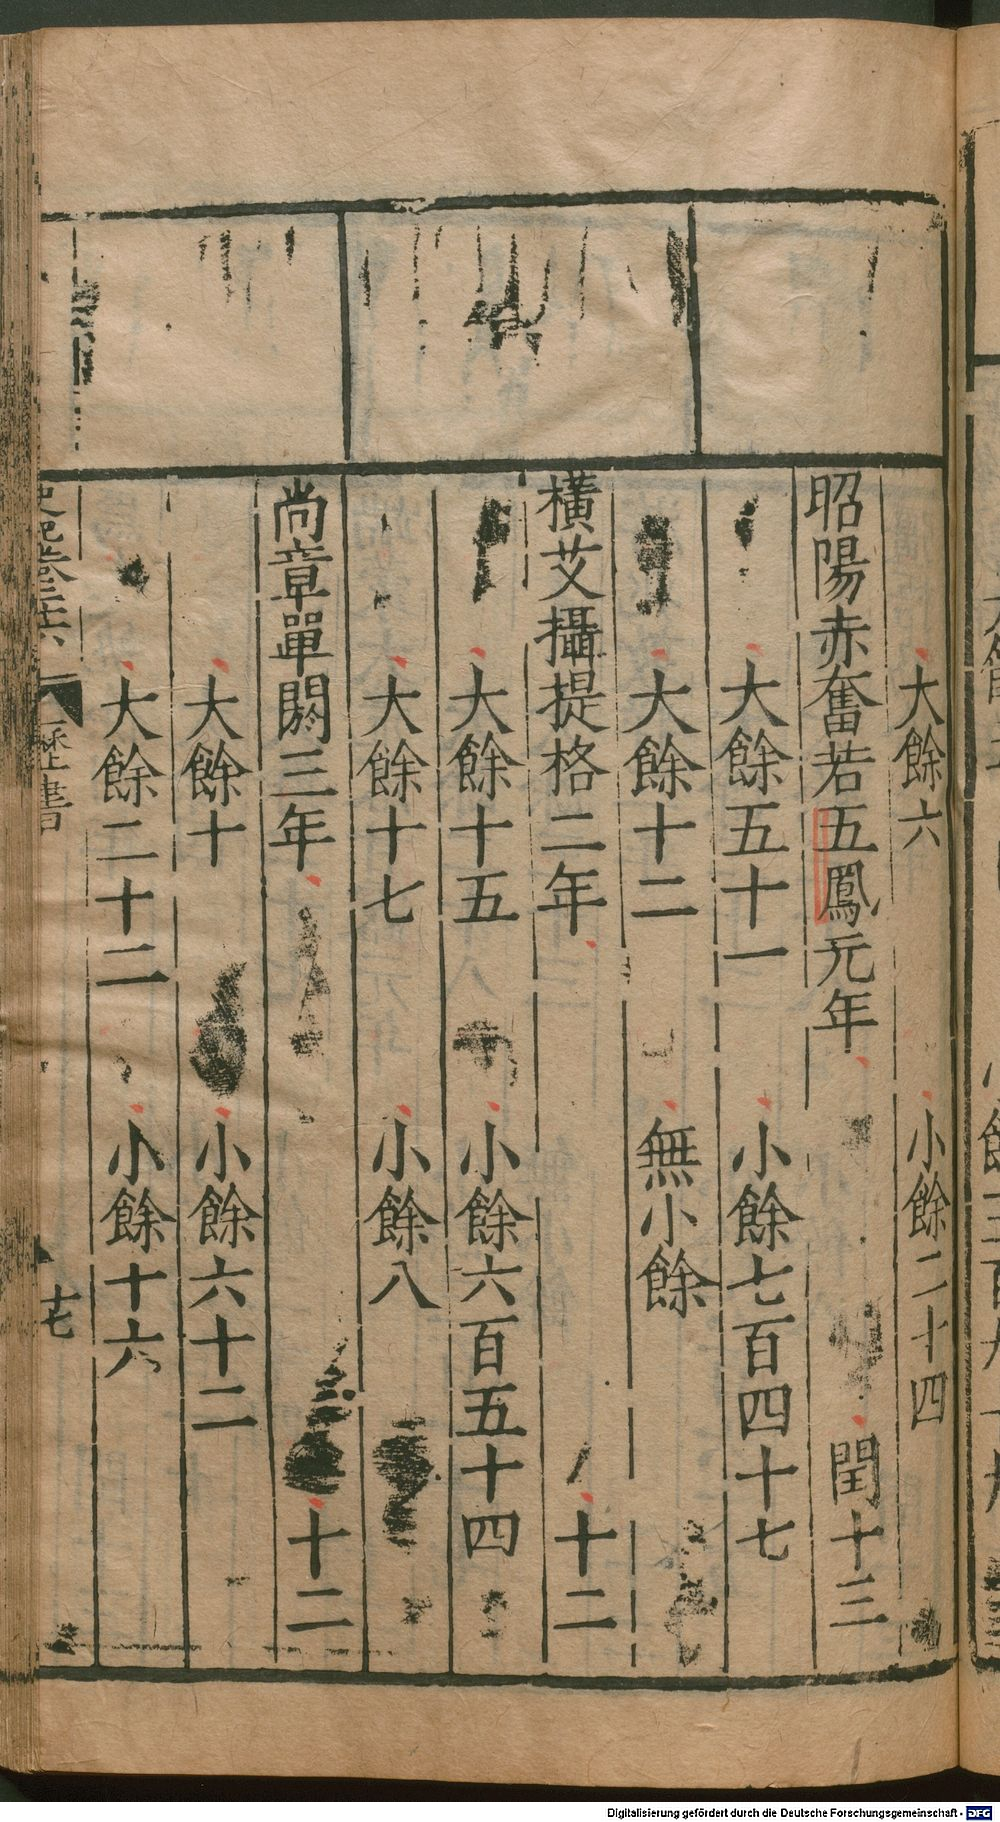 大餘六 小餘二十四
昭陽赤奮若五鳳元年 閏十三
大餘五十一 小餘七百四十七
大餘十二 無小餘
橫艾攝提格二年 十二
大餘十五 小餘六百五十四
大餘十七 小餘八
尚章單閼三年 十二
大餘十 小餘六十二
大餘二十二 小餘十六
史記卷二十六 歷書 十七
Digitalisierung gefördert durch die Deutsche Forschungsgemeinschaft - DFG